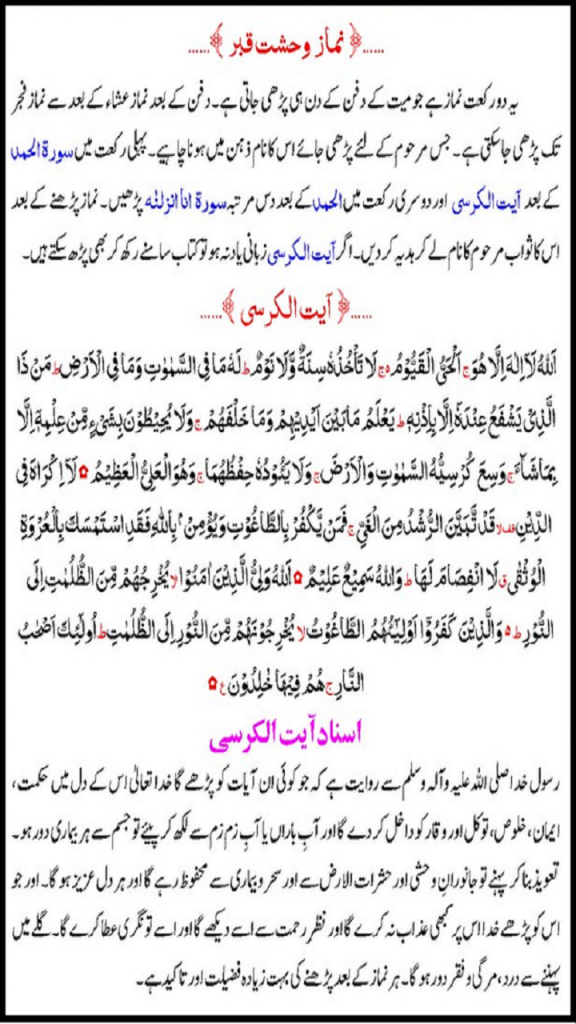 ……﴿ نماز وحشت قبر ﴾……
یہ دو رکعت نماز ہے جو میت کے دفن کے دن ہی پڑھی جاتی ہے۔ دفن کے بعد نماز عشاء کے بعد سے نماز فجر
تک پڑھی جا سکتی ہے۔ جس مرحوم کے لئے پڑھی جائے اس کا نام ذہن میں ہونا چاہیے۔ پہلی رکعت میں سورۃ الحمد
کے بعد آیت الکرسی اور دوسری رکعت میں الحمد کے بعد دس مرتبہ سورۃ انا انزلنٰہ پڑھیں۔ نماز پڑھنے کے بعد
اس کا ثواب مرحوم کا نام لے کر ہدیہ کر دیں۔ اگر آیت الکرسی زبانی یاد نہ ہو تو کتاب سامنے رکھ کر بھی پڑھ سکتے ہیں۔
……﴿ آیت الکرسی ﴾……
اَللّٰہُ لَآ اِلٰہَ اِلَّا ھُوَ ج اَلْحَیُّ الْقَیُّوْمُ ہ ج لَا تَاْخُذُہٗ سِنَۃٌ وَّلَا نَوْمٌ ط لَہٗ مَا فِی السَّمٰوٰتِ وَمَا فِی الْاَرْضِ ط مَنْ ذَا
الَّذِیْ یَشْفَعُ عِنْدَہٗٓ اِلَّا بِاِذْنِہٖ ط یَعْلَمُ مَا بَیْنَ اَیْدِیْہِمْ وَمَا خَلْفَھُمْ ج وَلَا یُحِیْطُوْنَ بِشَیْءٍ مِّنْ عِلْمِہٖٓ اِلَّا
بِمَا شَآءَ ج وَسِعَ کُرْسِیُّہُ السَّمٰوٰتِ وَالْاَرْضَ ج وَلَا یَئُوْدُہٗ حِفْظُھُمَا ج وَھُوَ الْعَلِیُّ الْعَظِیْمُ ۝ لَآ اِکْرَاہَ فِی
الدِّیْنِ قف لا قَدْ تَّبَیَّنَ الرُّشْدُ مِنَ الْغَیِّ ج فَمَنْ یَّکْفُرْ بِالطَّاغُوْتِ وَیُؤْمِنْۢ بِاللّٰہِ فَقَدِ اسْتَمْسَکَ بِالْعُرْوَۃِ
الْوُثْقٰی ق لَا انْفِصَامَ لَھَا ط وَاللّٰہُ سَمِیْعٌ عَلِیْمٌ ۝ اَللّٰہُ وَلِیُّ الَّذِیْنَ اٰمَنُوْا لا یُخْرِجُھُمْ مِّنَ الظُّلُمٰتِ اِلَی
النُّوْرِ ط ہ وَالَّذِیْنَ کَفَرُوْٓا اَوْلِیٰٓئُھُمُ الطَّاغُوْتُ لا یُخْرِجُوْنَھُمْ مِّنَ النُّوْرِ اِلَی الظُّلُمٰتِ ط اُولٰٓئِکَ اَصْحٰبُ
النَّارِ ج ھُمْ فِیْھَا خٰلِدُوْنَ ع ۝
اسناد آیت الکرسی
رسول خدا صلی اللہ علیہ وآلہ وسلم سے روایت ہے کہ جو کوئی ان آیات کو پڑھے گا خدا تعالیٰ اس کے دل میں حکمت،
ایمان، خلوص، توکل اور وقار کو داخل کر دے گا اور آبِ باراں یا آبِ زم زم سے لکھ کر پیئے تو جسم سے ہر بیماری دور ہو۔
تعویذ بنا کر پہنے تو جانورانِ وحشی اور حشرات الارض سے اور سحر و بیماری سے محفوظ رہے گا اور ہر دل عزیز ہو گا۔ اور جو
اس کو پڑھے خدا اس پر کبھی عذاب نہ کرے گا اور نظر رحمت سے اسے دیکھے گا اور اسے تونگری عطا کرے گا۔ گلے میں
پہننے سے درد، مرگی و فقر دور ہو گا۔ ہر نماز کے بعد پڑھنے کی بہت زیادہ فضیلت اور تاکید ہے۔